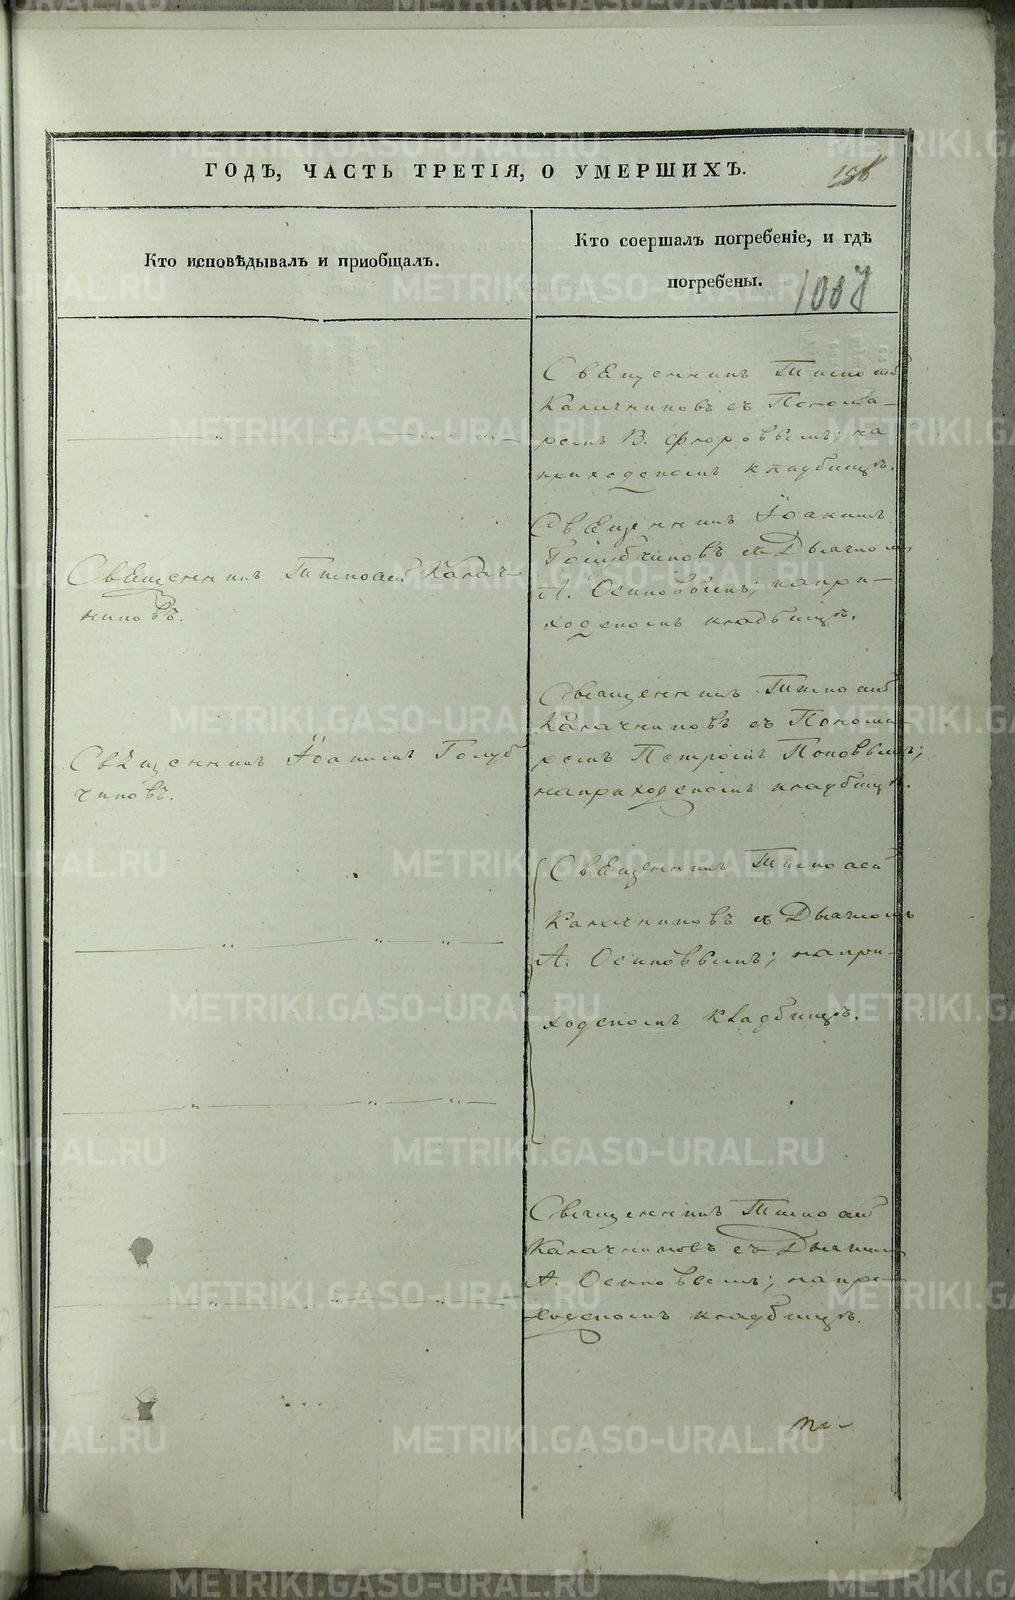 ГОДЪ, ЧАСТЬ ТРЕТІЯ, О УМЕРШИХЪ.
Кто исповѣдывалъ и приобщалъ.
Кто соершалъ погребеніе, и гдѣ
погребены.
1007
Священникъ Тимоѳей
Калачниковъ съ Понома-
ремъ В. Флоровымъ; на
приходскомъ кладбищѣ.
Священникъ Іоакимъ
Голубчиковъ съ Дьячкомъ
А. Осиповымъ; на при-
ходскомъ кладбищѣ.
Священникъ Тимоѳей Калач-
никовъ.
Священникъ Тимоѳей
Калачниковъ съ Понома-
ремъ Петромъ Поповымъ;
на приходскомъ кладбищѣ.
Священникъ Іоакимъ Голуб
чиковъ.
Священникъ Тимоѳей
Калачниковъ съ Дьячкомъ
А. Осиповымъ; на при-
ходскомъ кладбищѣ.
Священникъ Тимоѳей
Калачниковъ съ Дьячкомъ
А. Осиповымъ; на при-
ходскомъ кладбищѣ.
METRIKI.GASO-URAL.RU